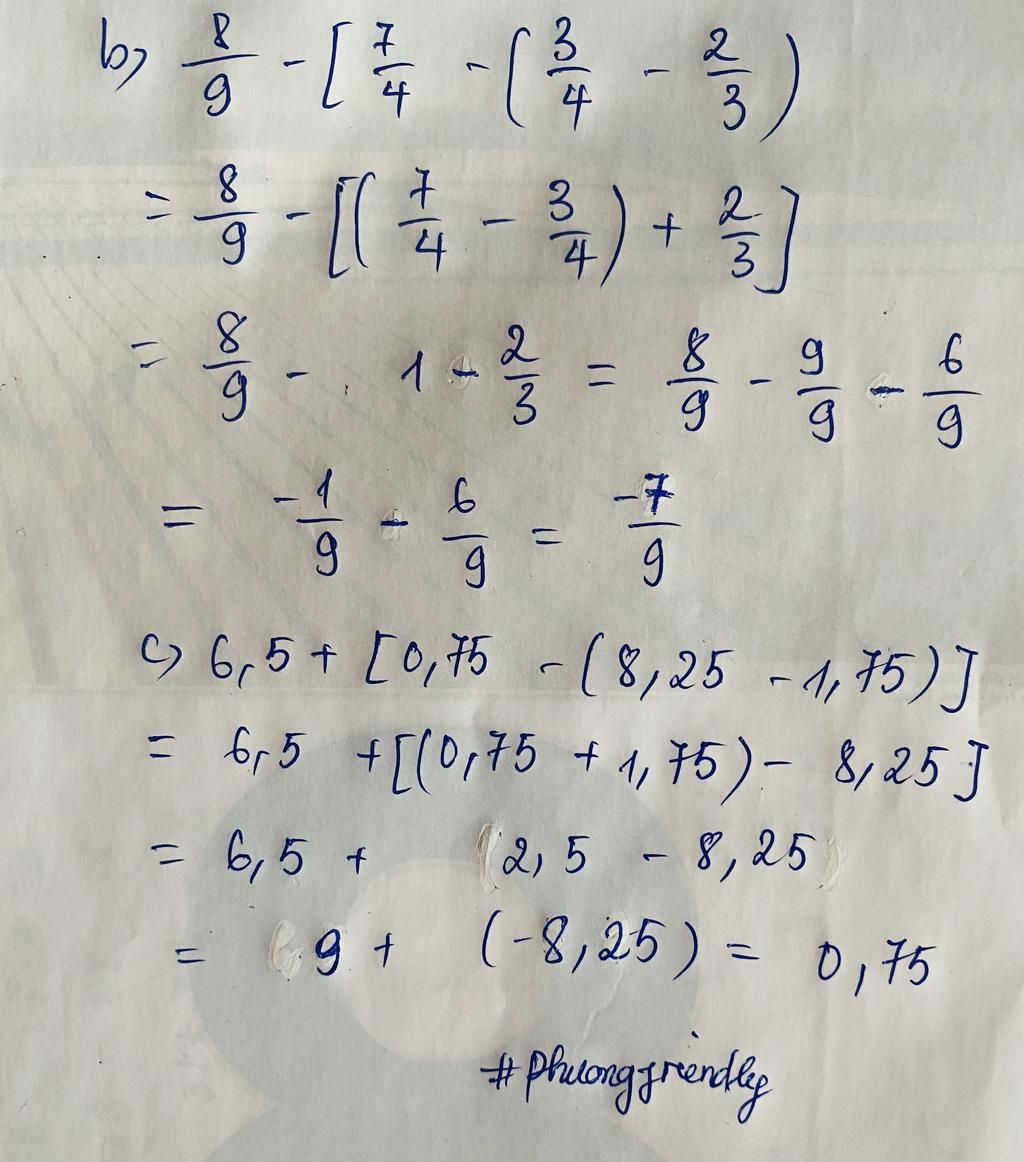 b) 8/9 - [7/4 - (3/4 - 2/3)
= 8/9 - [(7/4 - 3/4) + 2/3]
= 8/9 - 1 - 2/3 = 8/9 - 9/9 - 6/9
= -1/9 - 6/9 = -7/9
c) 6,5 + [0,75 - (8,25 - 1,75)]
= 6,5 + [(0,75 + 1,75) - 8,25]
= 6,5 + 2,5 - 8,25
= 9 + (-8,25) = 0,75
#phuongfriendly